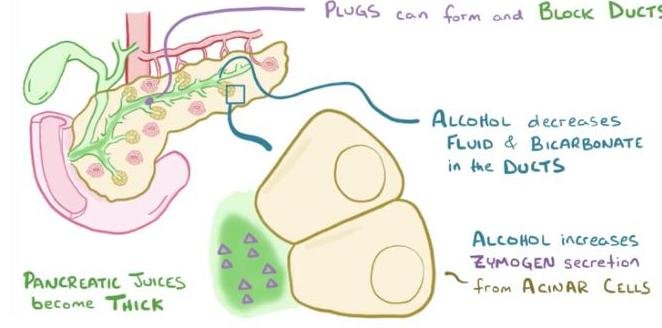 PLUGS can form and BLOCK DUCTS
ALCOHOL decreases
FLUID & BICARBONATE
in the DUCTS
ALCOHOL increases
ZYMOGEN secretion
from ACINAR CELLS
PANCREATIC JUICES
become THICK